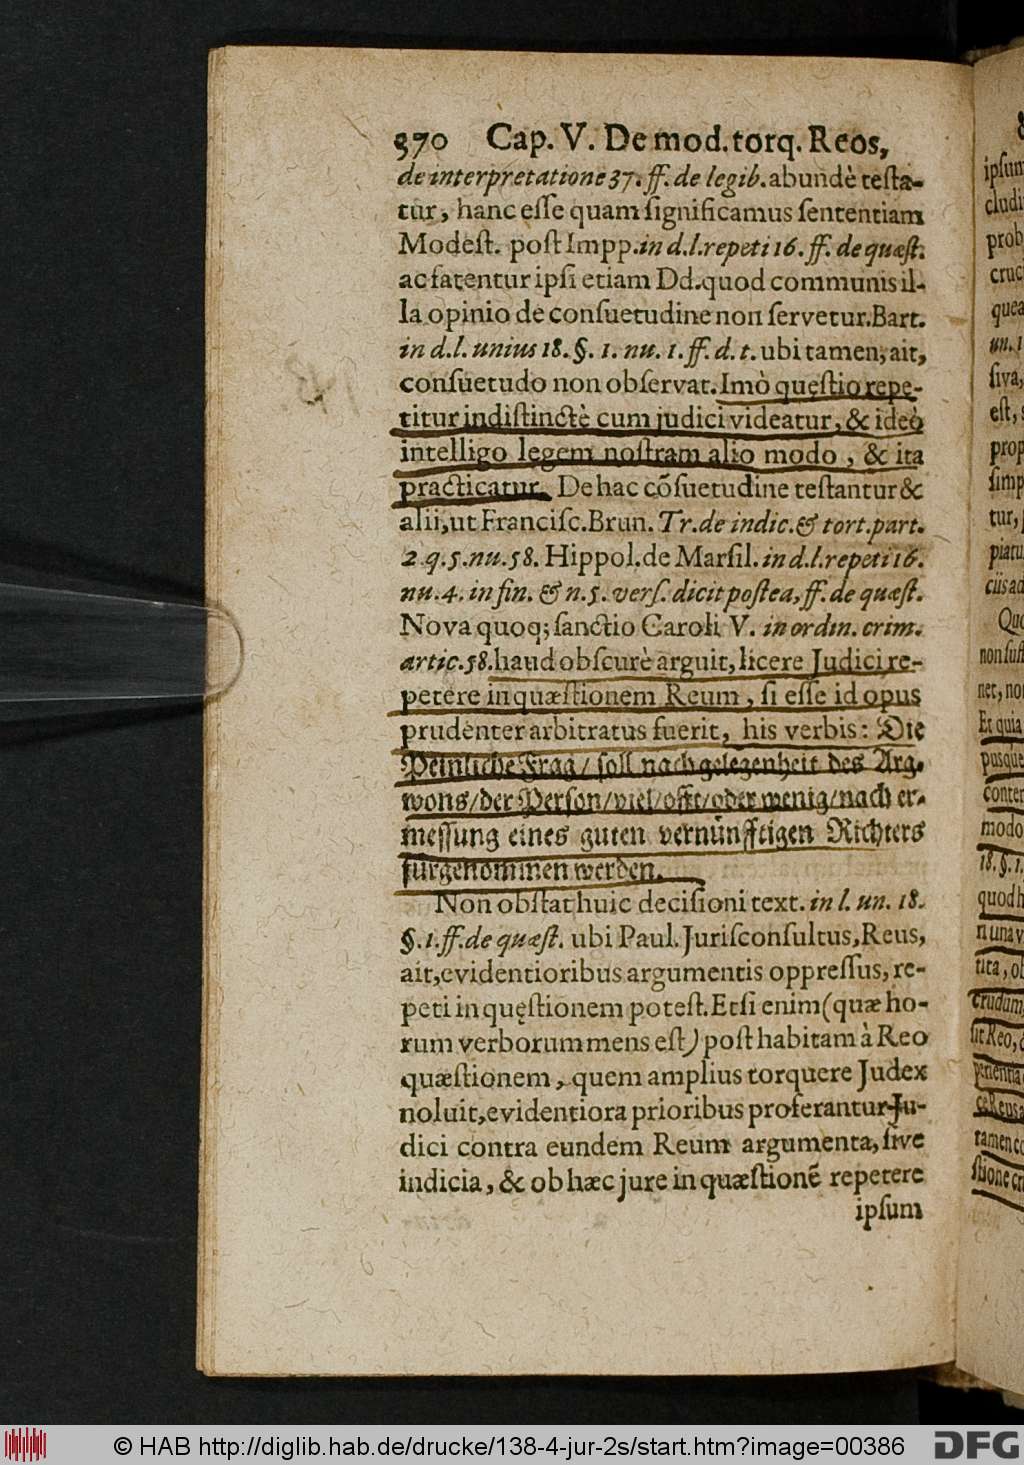 370 Cap. V. De mod. torq. Reos,
de interpretatione 37. ff. de legib. abundè testa-
tur, hanc esse quam significamus sententiam
Modest. post Impp. in d. l. repeti 16. ff. de quæst.
ac fatentur ipsi etiam Dd. quod communis il-
la opinio de consuetudine non servetur. Bart.
in d. l. unius 18. §. 1. nu. 1. ff. d. t. ubi tamen, ait,
consuetudo non observat. Imò quęstio repe-
titur indistinctè cum judici videatur, & ideò
intelligo legem nostram alio modo, & ita
practicatur. De hac cõsuetudine testantur &
alii, ut Francisc. Brun. Tr. de indic. & tort. part.
2 q. 5. nu. 58. Hippol. de Marsil. in d. l. repeti 16.
nu. 4. in fin. & n. 5. vers. dicit postea, ff. de quæst.
Nova quoq; sanctio Caroli V. in ordin. crim.
artic. 58. haud obscurè arguit, licere Judici re-
petere in quæstionem Reum, si esse id opus
prudenter arbitratus fuerit, his verbis: Die
Peinliche Frag/ soll nach gelegenheit des Arg-
wons/ der Person/ viel/ offt/ oder wenig/ nach er-
messung eines guten vernünfftigen Richters
fürgenommen werden.
Non obstat huic decisioni text. in l. un. 18.
§. 1. ff. de quæst. ubi Paul. Jurisconsultus, Reus,
ait, evidentioribus argumentis oppressus, re-
peti in quęstionem potest. Etsi enim (quæ ho-
rum verborum mens est) post habitam à Reo
quæstionem, quem amplius torquere Judex
noluit, evidentiora prioribus proferantur Ju-
dici contra eundem Reum argumenta, sive
indicia, & ob hæc jure in quæstionẽ repetere
ipsum
© HAB http://diglib.hab.de/drucke/138-4-jur-2s/start.htm?image=00386
DFG